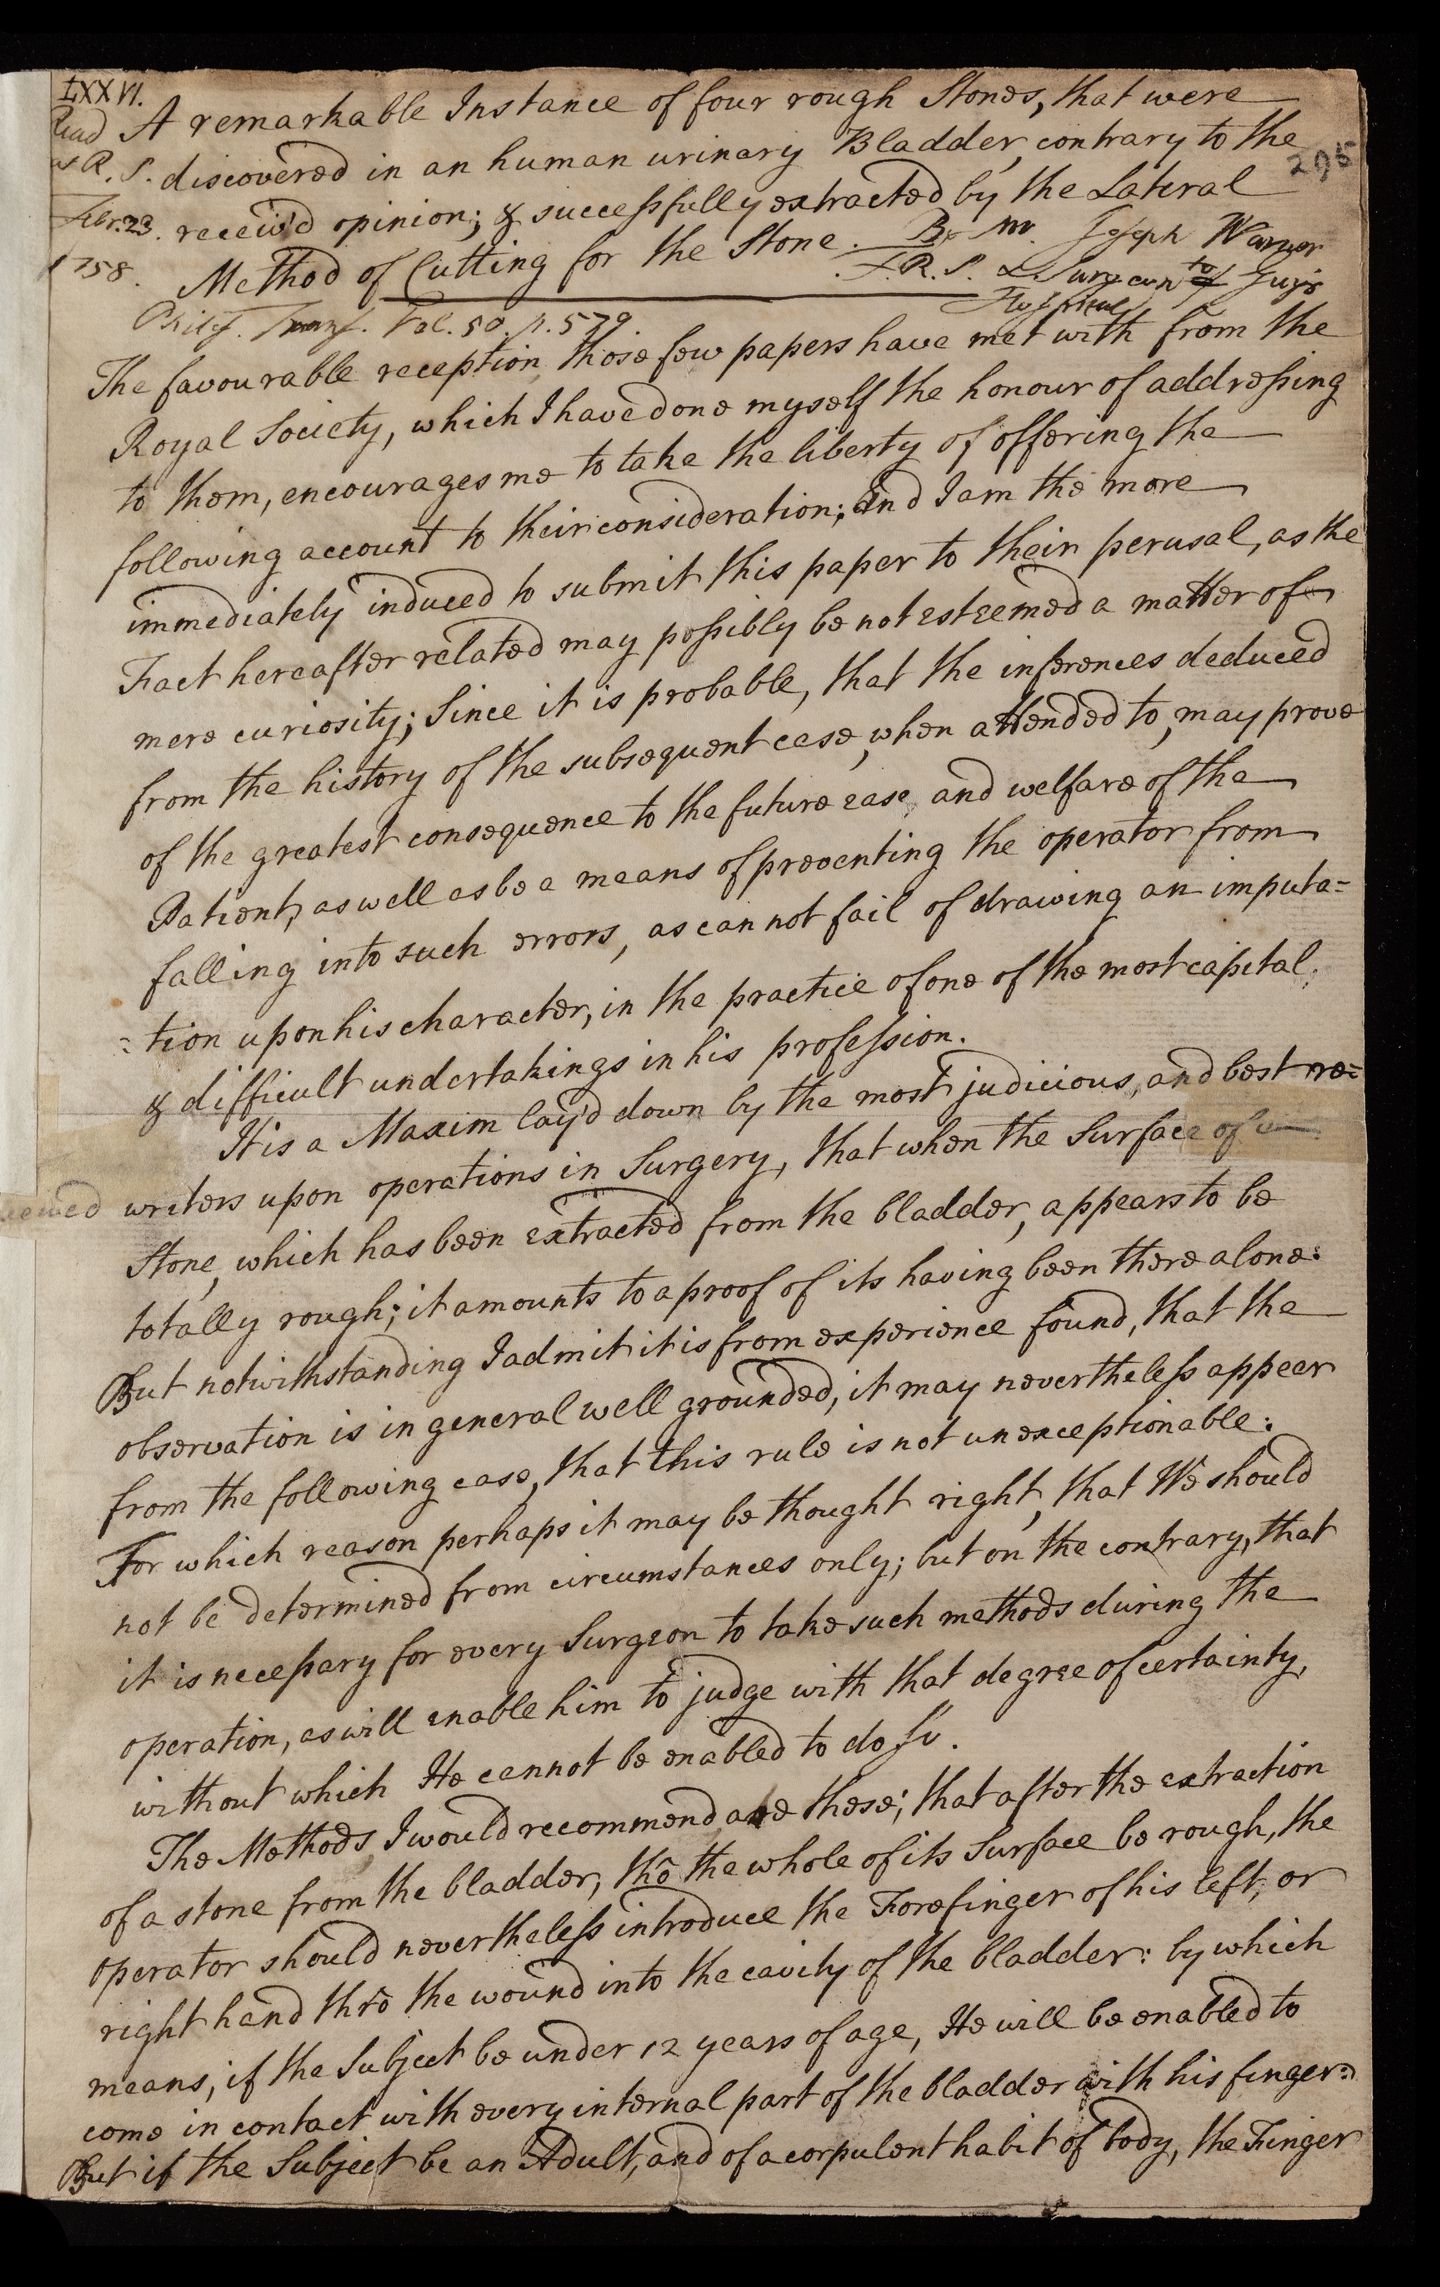 LXXVI.
A remarkable Instance of four rough Stones, that were
Read
at R. S.
Febr. 23.
1758.
discovered in an human urinary Bladder, contrary to the
295
receiv'd opinion; & successfully extracted by the Lateral
Method of Cutting for the Stone. By Mr. Joseph Warner
F.R.S. & Surgeon to Guy's
Hospital
Philos. Trans. Vol. 50. p. 579.
The favourable reception those few papers have met with from the
Royal Society, which I have done myself the honour of addressing
to them, encourages me to take the liberty of offering the
following account to their consideration; And I am the more
immediately induced to submit this paper to their perusal, as the
Fact hereafter related may possibly be not esteemed a matter of
mere curiosity; Since it is probable, that the inferences deduced
from the history of the subsequent case, when attended to, may prove
of the greatest consequence to the future ease and welfare of the
Patient, as well as be a means of preventing the operator from
falling into such errors, as can not fail of drawing an imputa=
=tion upon his character, in the practice of one of the most capital,
& difficult undertakings in his profession.
It is a Maxim lay'd down by the most judicious, and best re=
ceived writers upon operations in Surgery, that when the Surface of a
Stone, which has been extracted from the bladder, appears to be
totally rough; it amounts to a proof of its having been there alone:
But notwithstanding I admit it is from experience found, that the
observation is in general well grounded, it may nevertheless appear
from the following case, that this rule is not unexceptionable:
For which reason perhaps it may be thought right, that We should
not be determined from circumstances only; but on the contrary, that
it is necessary for every Surgeon to take such methods during the
operation, as will enable him to judge with that degree of certainty,
without which He cannot be enabled to do so.
The Methods I would recommend are these; that after the extraction
of a stone from the bladder, tho the whole of its Surface be rough, the
operator should nevertheless introduce the Forefinger of his left, or
right hand thro the wound into the cavity of the bladder: by which
means, if the Subject be under 12 years of age, He will be enabled to
come in contact with every internal part of the bladder with his finger:
But if the Subject be an Adult, and of a corpulent habit of body, the Finger